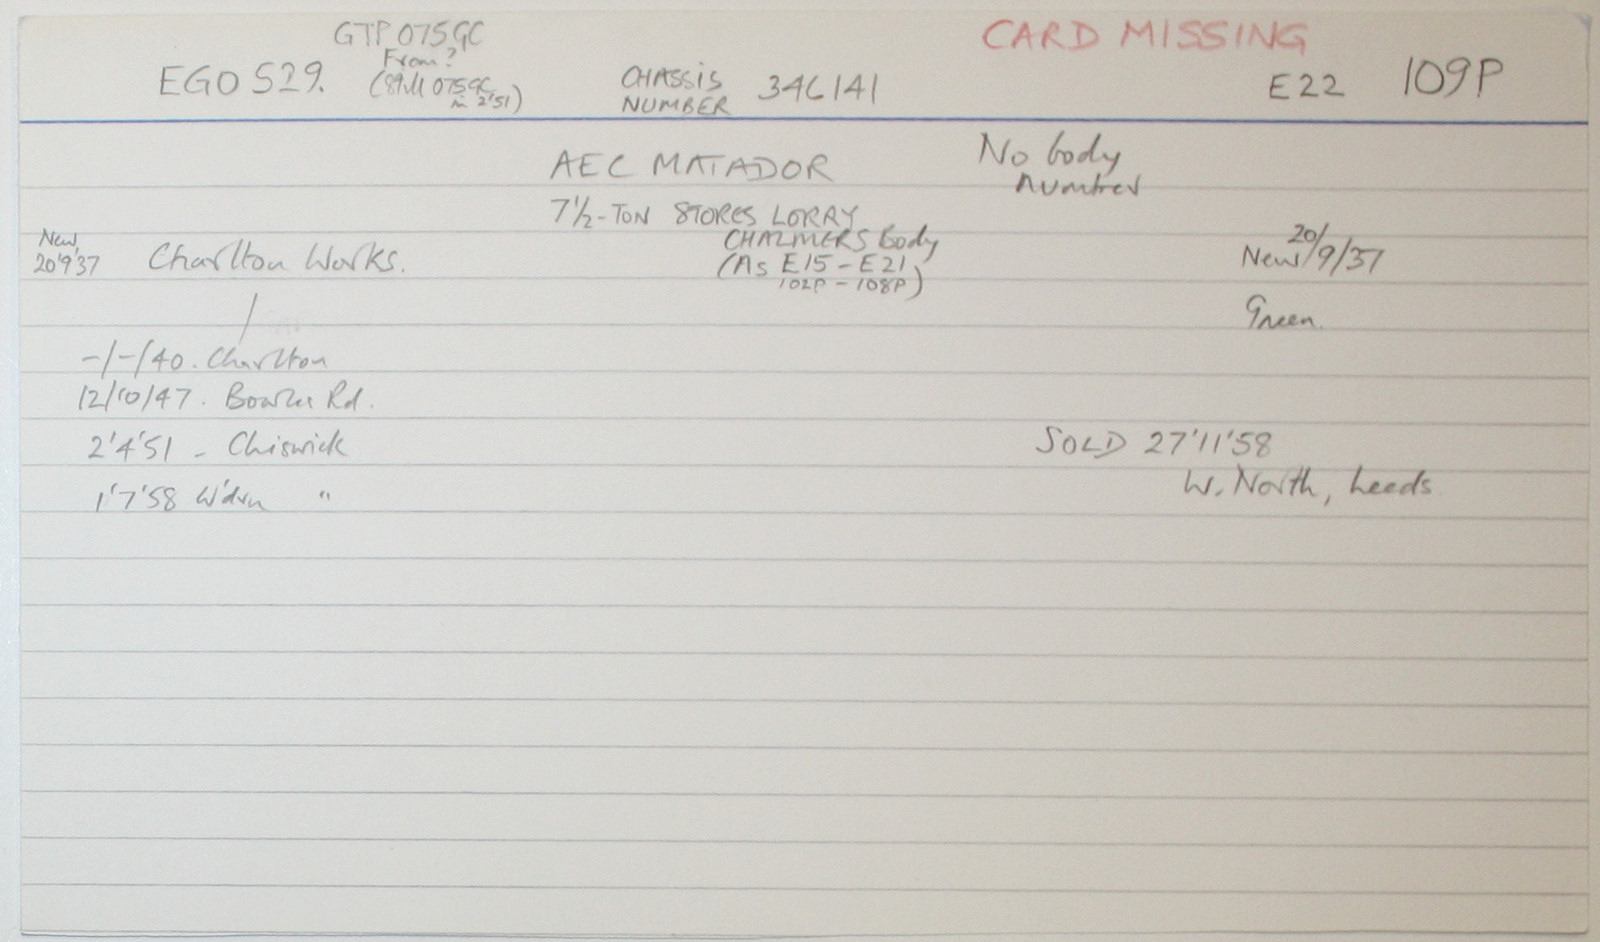 GTP 075GC
CARD MISSING
From?
EGO 529. (Still 075GC
in 2'51)
CHASSIS
NUMBER 346141
E22 109P
AEC MATADOR
No body
number
7½-TON STORES LORRY
CHALMERS Body
(As E15-E21
102P-108P)
New
20'9'37 Charlton Works.
20/
New/9/37
Green.
-/-/40. Charlton
12/10/47. Rd.
2'4'51 - Chiswick
SOLD 27'11'58
W. North, Leeds
1'7'58 W'drn "